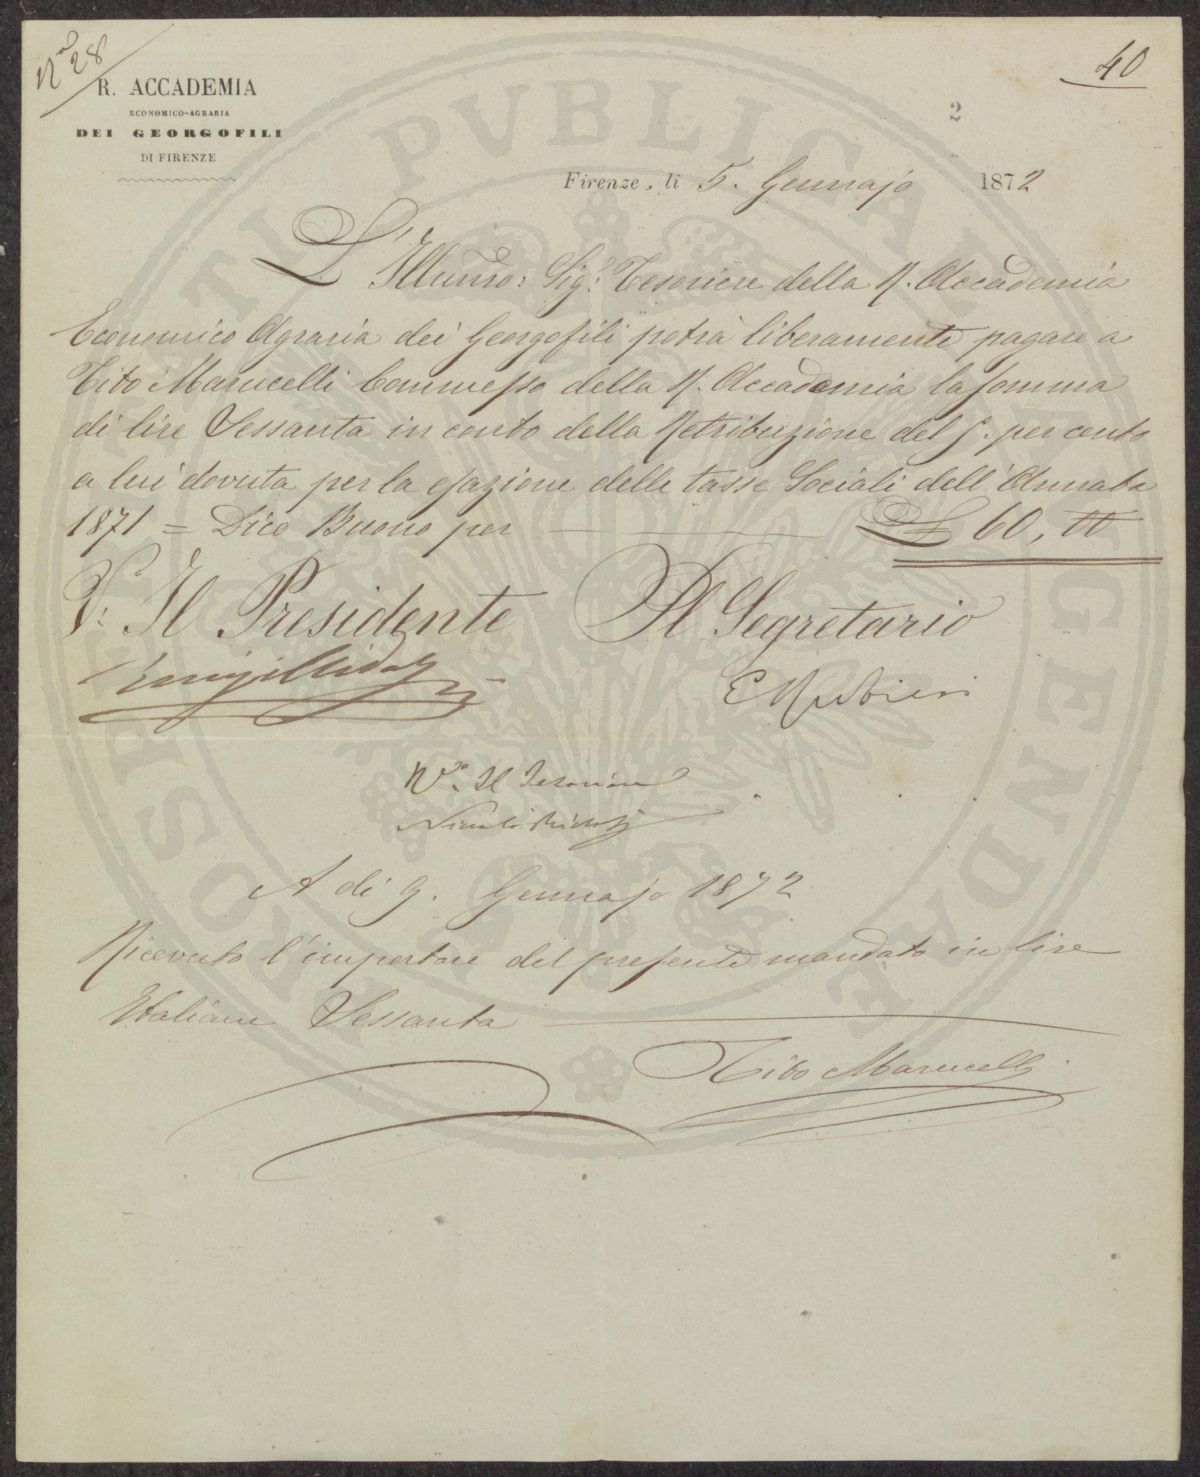 N° 28
40
R. ACCADEMIA
ECONOMICO-AGRARIA
DEI GEORGOFILI
DI FIRENZE
2
Firenze, li 5. Gennajo 1872
L'Illumo: Sig.r Tesoriere della R. Accademia
Economico Agraria dei Georgofili potrà liberamente pagare a
Tito Marucelli Commesso della R. Accademia la somma
di lire Sessanta in conto della Retribuzione del 5. per cento
a lui dovuta per la esazione delle tasse Sociali dell'Annata
1871 = Dico Buono per £ 60, 00
V: Il Presidente Il Segretario
Luigi Ridolfi
E Rubieri
V° Il Tesoriere
Niccolò Ridolfi
A dì 9. Gennajo 1872
Ricevuto l'importare del presente mandato in lire
Italiane Sessanta
Tito Marucelli
PROSPERITATI PVBLICAE AVGENDAE